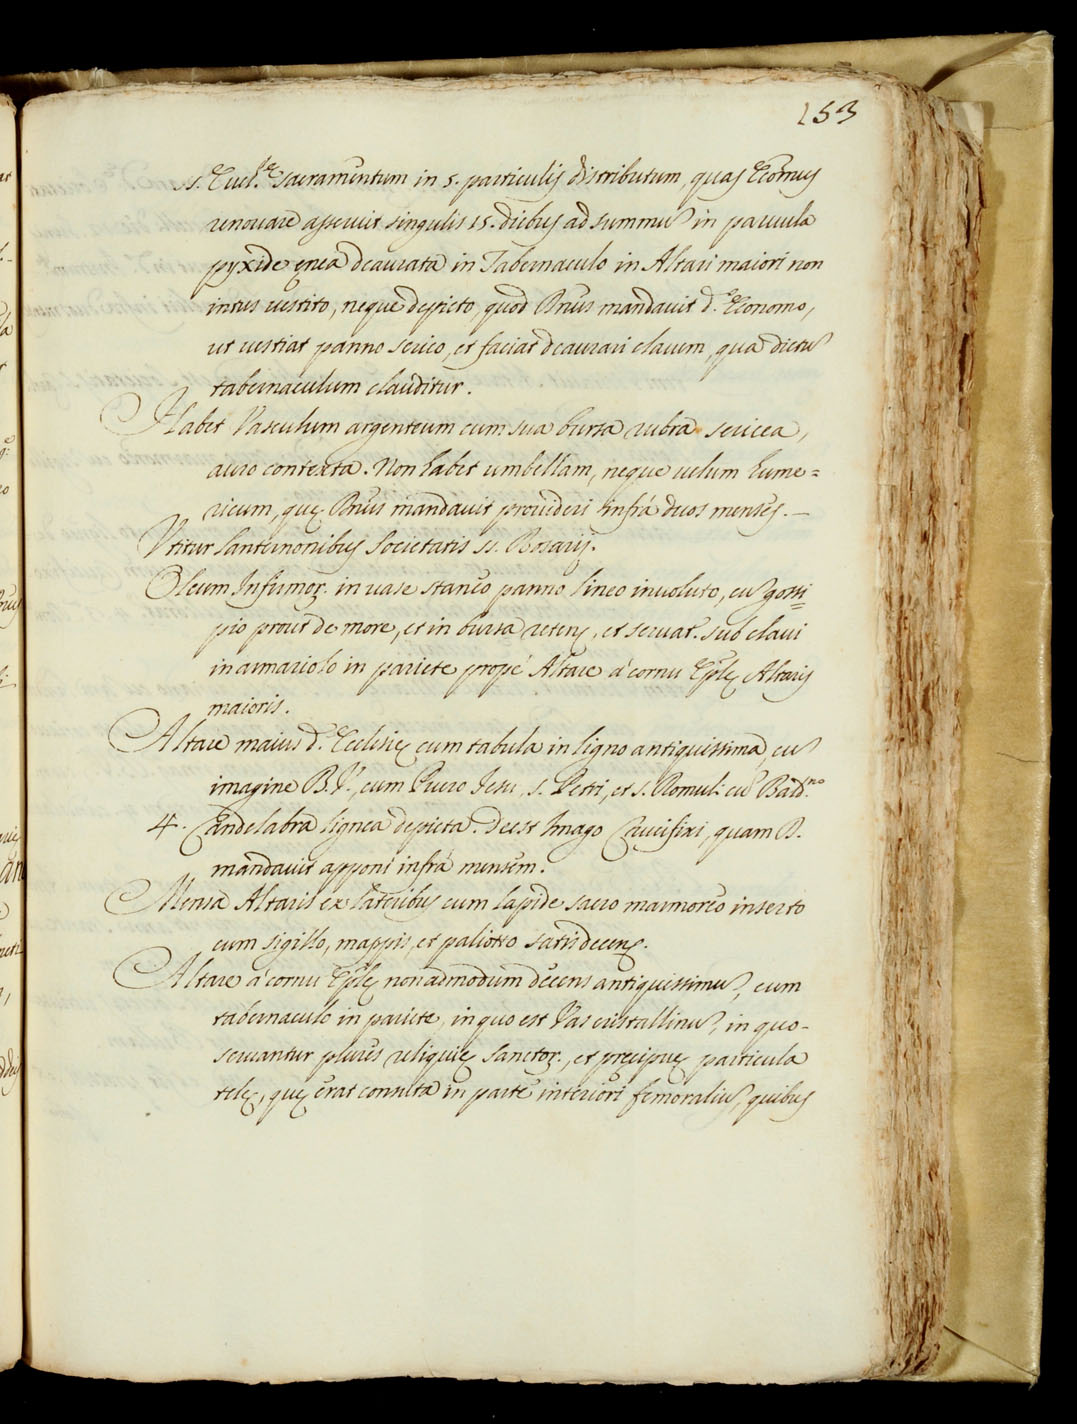 153
SS. Euc.ᵉ Sacramentum in 5. particulis distributum, quas Economus
renovare asseruit singulis 15. diebus ad summũ in parvula
pyxide ęnea deaurata in Tabernaculo in Altari maiori non
intus vestito, neque depicto, quod Bñus mandavit d.º Economo,
ut vestiat panno serico, et faciat deaurari clavem, qua dictũ
tabernaculum clauditur.
Habet Vasculum argenteum cum sua bursa rubra sericea,
auro contexta. Non habet umbellam, neque velum hume=
ricum, quę Bñus mandavit provideri infrà duos menses. —
Vtitur lanternonibus Societatis SS. Rosarij.
Oleum Infirmoꝝ. in vase staneo panno lineo involuto, cũ gossi=
pio prout de more, et in bursa retenę, et servat. sub clavi
in armariolo in pariete propè Altare à cornu Ep̃lę Altaris
maioris.
Altare maius d.ę Ecclesię cum tabula in ligno antiquissima, cũ
imagine B. V., cum Puero Iesu, S. Petri, et S. Romuli cũ Bald.ⁿᵒ
4. Candelabra lignea depicta. Deest Imago Crucifixi, quam B.
mandavit apponi infrà mensem.
Mensa Altaris ex lateribus cum lapide sacro marmoreo inserto
cum sigillo, mappis, et paliotto satis decenꝫ.
Altare à cornu Ep̃lę non admodum decens antiquissimũ, cum
tabernaculo in pariete, in quo est Vas cristallinũ, in quo-
servantur plures reliquię Sanctoꝝ., et pręcipuę particula
telę, quę erat consuta in parte interiori femoraliũ, quibus